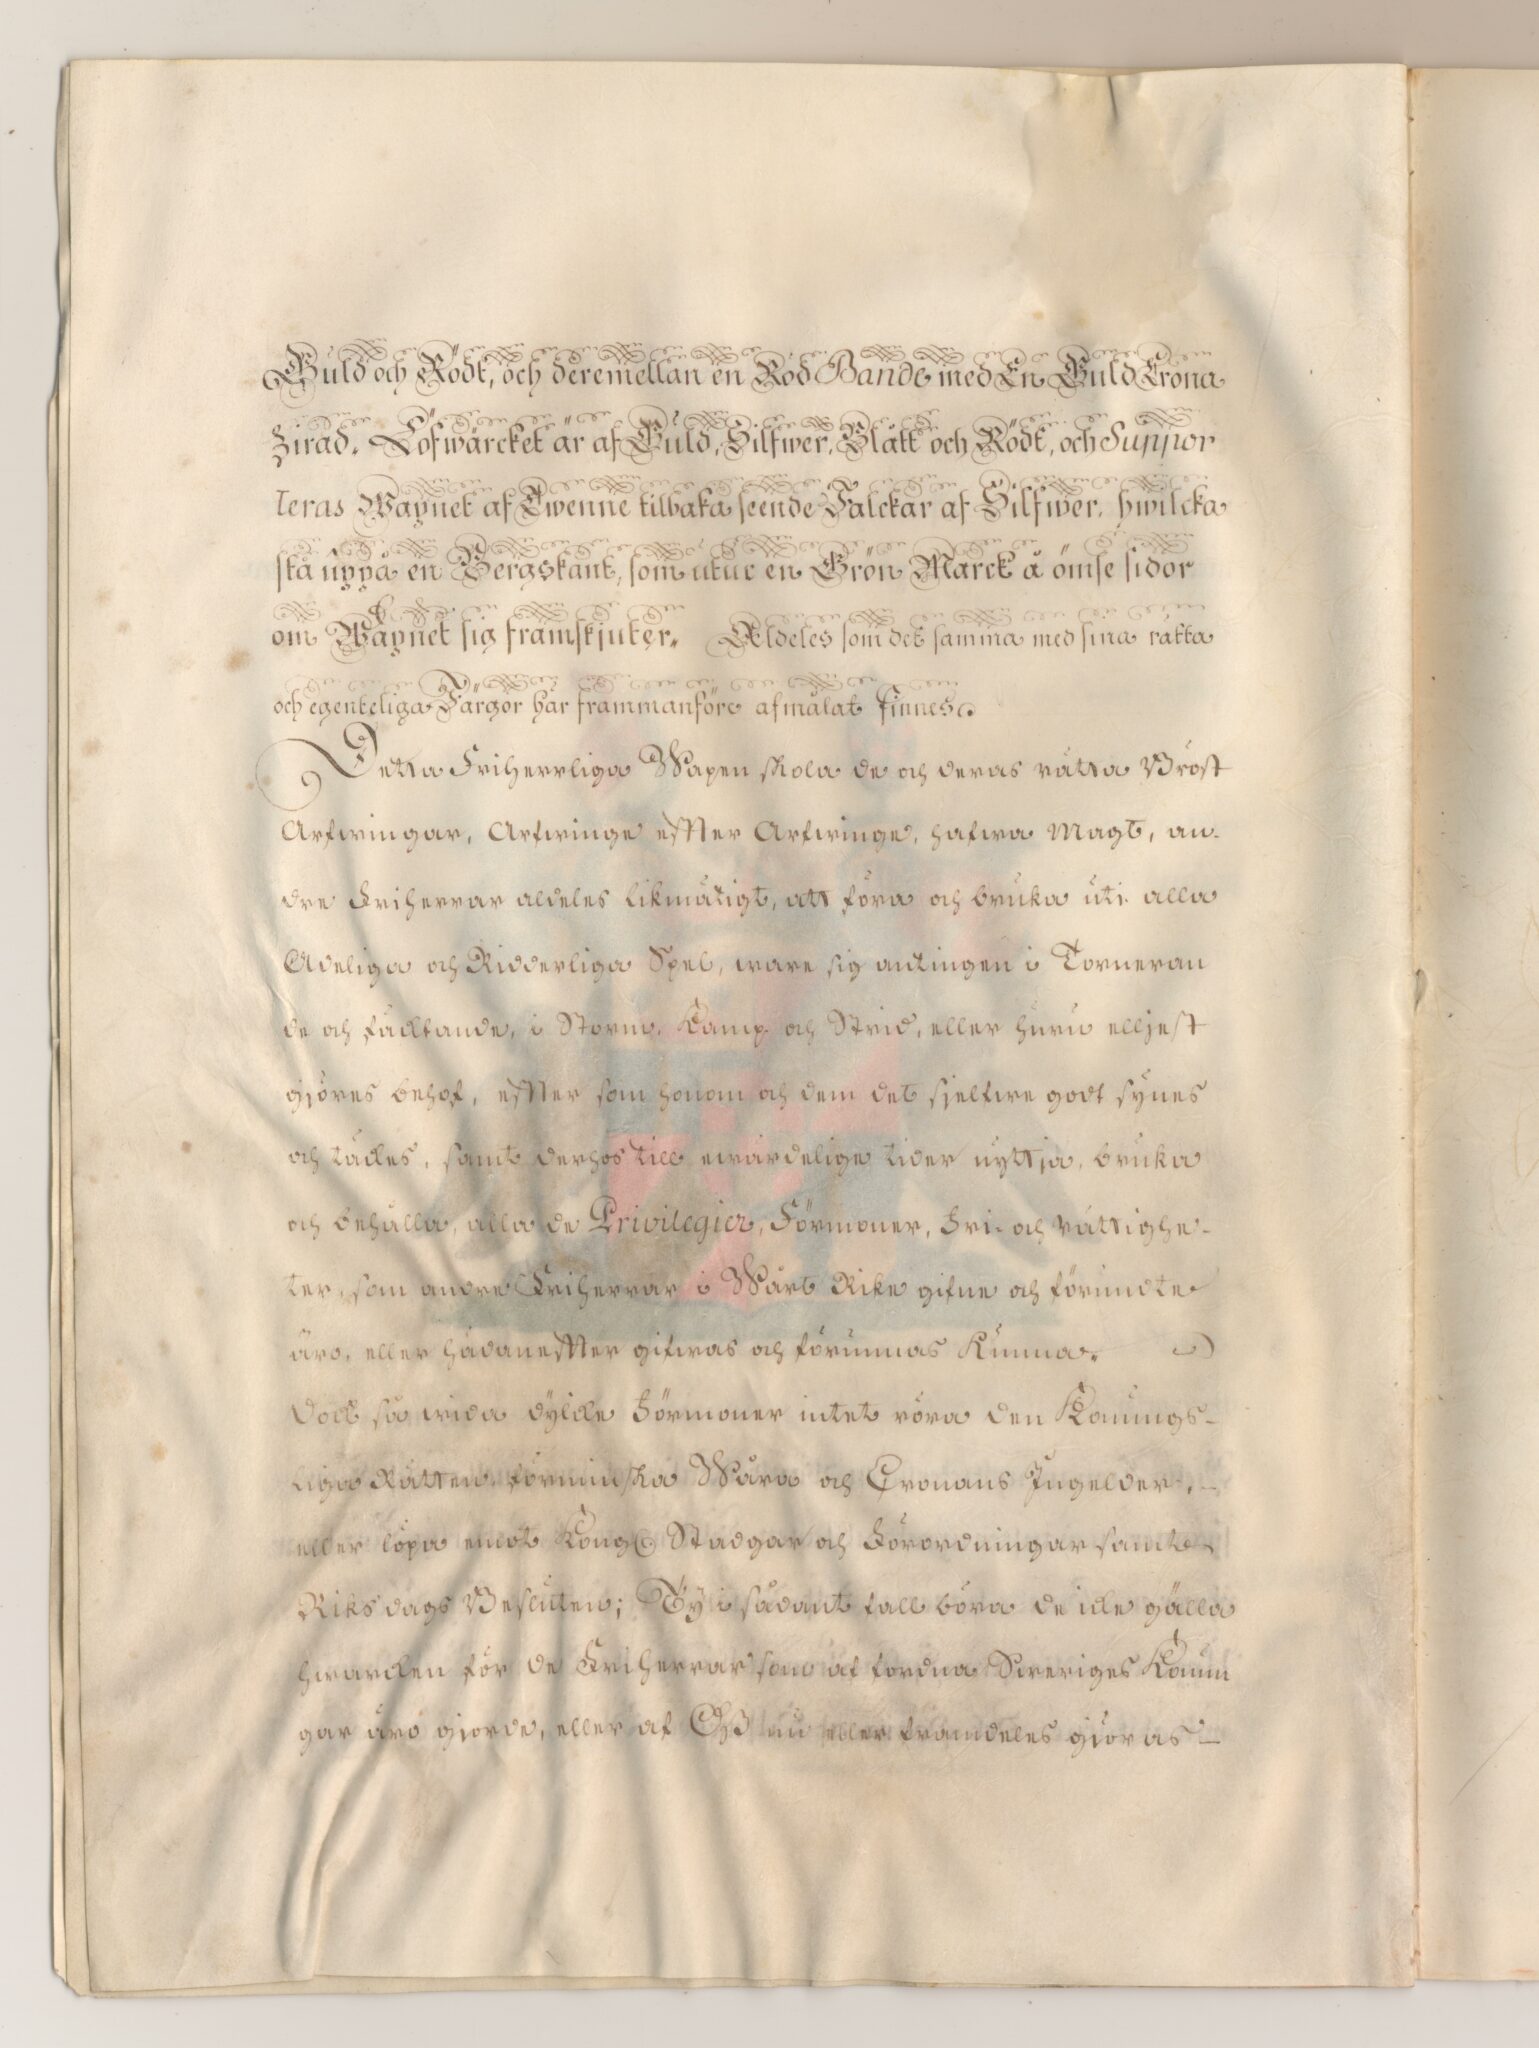 Guld och Rödt, och deremellan en Röd Bande med En Guld Crona
Zirad. Löfwärcket är af Guld, Silfwer, Blått och Rödt, och Suppor
teras Wapnet af Twenne tilbaka seende Falckar af Silfwer, hwilcka
stå uppå en Bergskant, som utur en Grön Marck å ömse sidor
om Wapnet sig framskjuter. Aldeles som det samma med sina rätta
och egenteliga Färgor här frammanföre afmålat finnes.
Detta Friherrliga Wapen skola de och deras rätta Bröst
Arfwingar, Arfwinge effter Arfwinge, hafwa Magt, an-
dre Friherrar aldeles likmätigt, att föra och bruka uti alla
Adeliga och Ridderliga Spel, ware sig antingen i Torneran
de och fäcktande, i Storm, Kamp och Strid, eller huru elljest
gjöres behof, effter som honom och dem det sjelfwe godt synes
och täckes, samt derhos till ewärdelige tider nyttja, bruka
och behålla, alla de Privilegier, Förmoner, Fri- och Rättighe-
ter, som andre Friherrar i Wårt Rike gifne och förundte
äro, eller hädaneffter gifwas och förunnas Kunna.
Dock så wida dylicke Förmoner intet röra den Konungs-
liga Rätten, förminska Wåra och Cronans Ingelder,
eller löpa emot Kongl. Stadgar och Förordningar samt
Riksdags Besluten; Ty i sådant fall böra de icke gälla
hwarcken för de Friherrar som af fordna Sweriges Konun
gar äro gjorde, eller af Oss nu eller framdeles gjöras